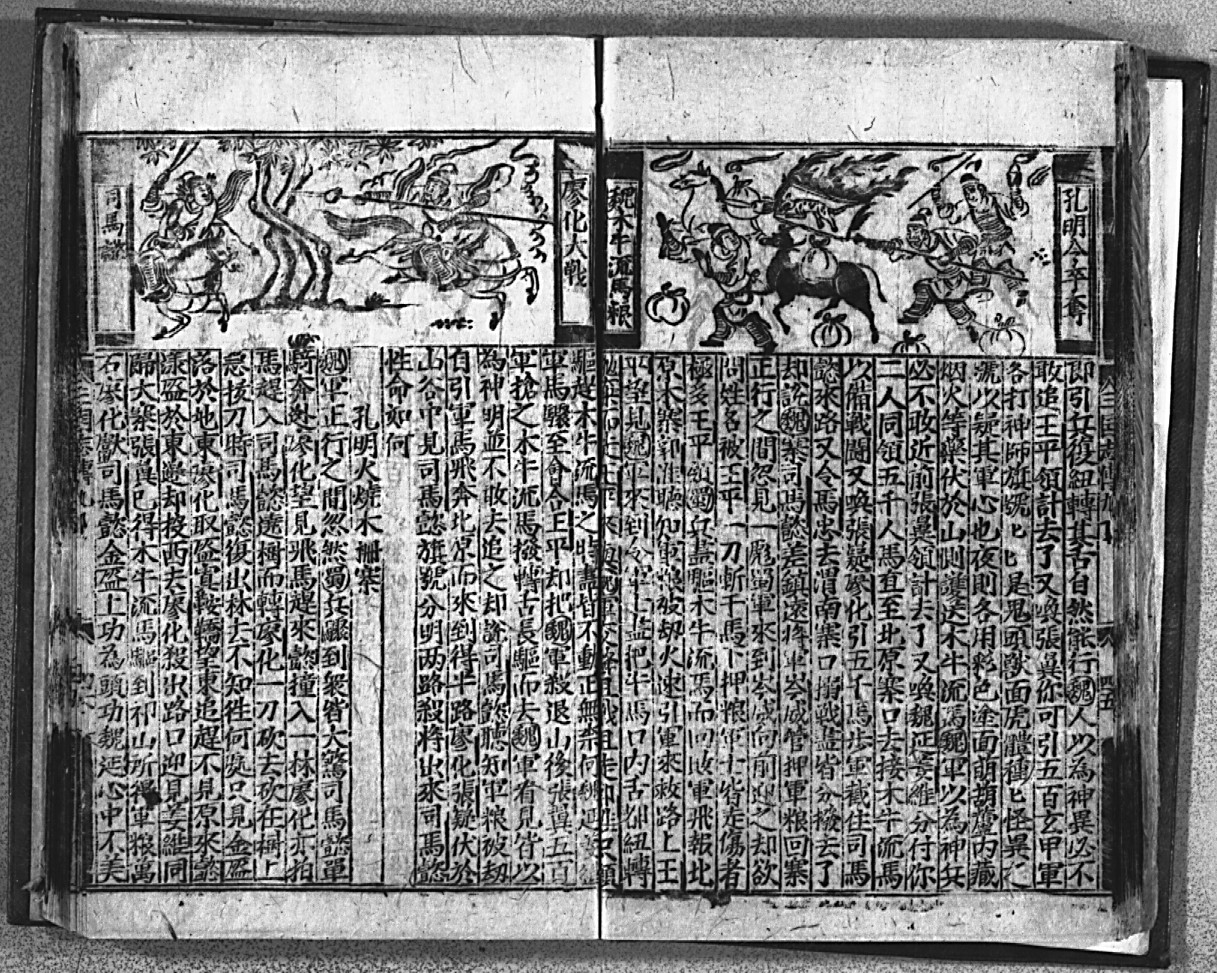 孔明令卒奪
魏木牛流馬粮
即引兵復紐轉其舌自然能行魏人以為神異必不
敢追王平領計去了又喚張翼你可引五百玄甲軍
各打神師旗號匕匕是鬼頭獸面虎體種匕怪異之
號以疑其軍心也夜則各用彩色塗面萌葫蘆內藏
烟火等舉伏於山側護送木牛流馬魏軍以為神兵
必不敢近前張翼領計去了又喚魏延姜維分付你
二人同領五千人馬直至北原寨口去接木牛流馬
以備戰鬪又喚張嶷廖化引五千馬步軍截住司馬
懿來路又令馬忠去渭南寨口搦戰盡皆分撥去了
却說魏寨司馬懿差鎮遠將軍岑威管押軍粮回寨
正行之間忽見一彪蜀軍來到岑威向前迎之却欲
問姓名被王平一刀斬于馬下押粮軍士皆走傷者
極多王平領蜀兵盡驅木牛流馬而回敗軍飛報北
原木寨郭淮聽知軍粮被刼火速引軍來救路上王
平望見魏軍來到令軍士盡把牛馬口內舌都紐轉
驅趕木牛流馬之時盡皆不動正無奈何
軍馬驟至會合王平却把魏軍殺退山後張翼五百
軍搶之木牛流馬撥轉舌長驅而去魏軍看見皆以
為神明並不敢去追之却說司馬懿聽知軍粮被刼
自引軍馬飛奔北原而來到得半路廖化張嶷伏於
山谷中見司馬懿旗號分明两路殺將出來司馬懿
性命如何
孔明火燒木柵寨
廖化大戰
司馬懿
魏軍正行之間忽然蜀兵驟到衆皆大驚司馬懿單
騎奔逊廖化望見飛馬趕來懿撞入一林廖化亦拍
馬趕入司馬懿遶樹而轉廖化一刀砍去砍在樹上
急拔刀時司馬懿復出林去不知徃何處只見金盔
落於地東廖化取盔寘鞍轎望東追趕不見原來懿
漾盔於東邊却投西去廖化殺出路口迎見姜維同
歸大寨張翼已得木牛流馬驅到祁山所得軍粮萬
石廖化獻司馬懿金盔上功為頭功魏延心中不美